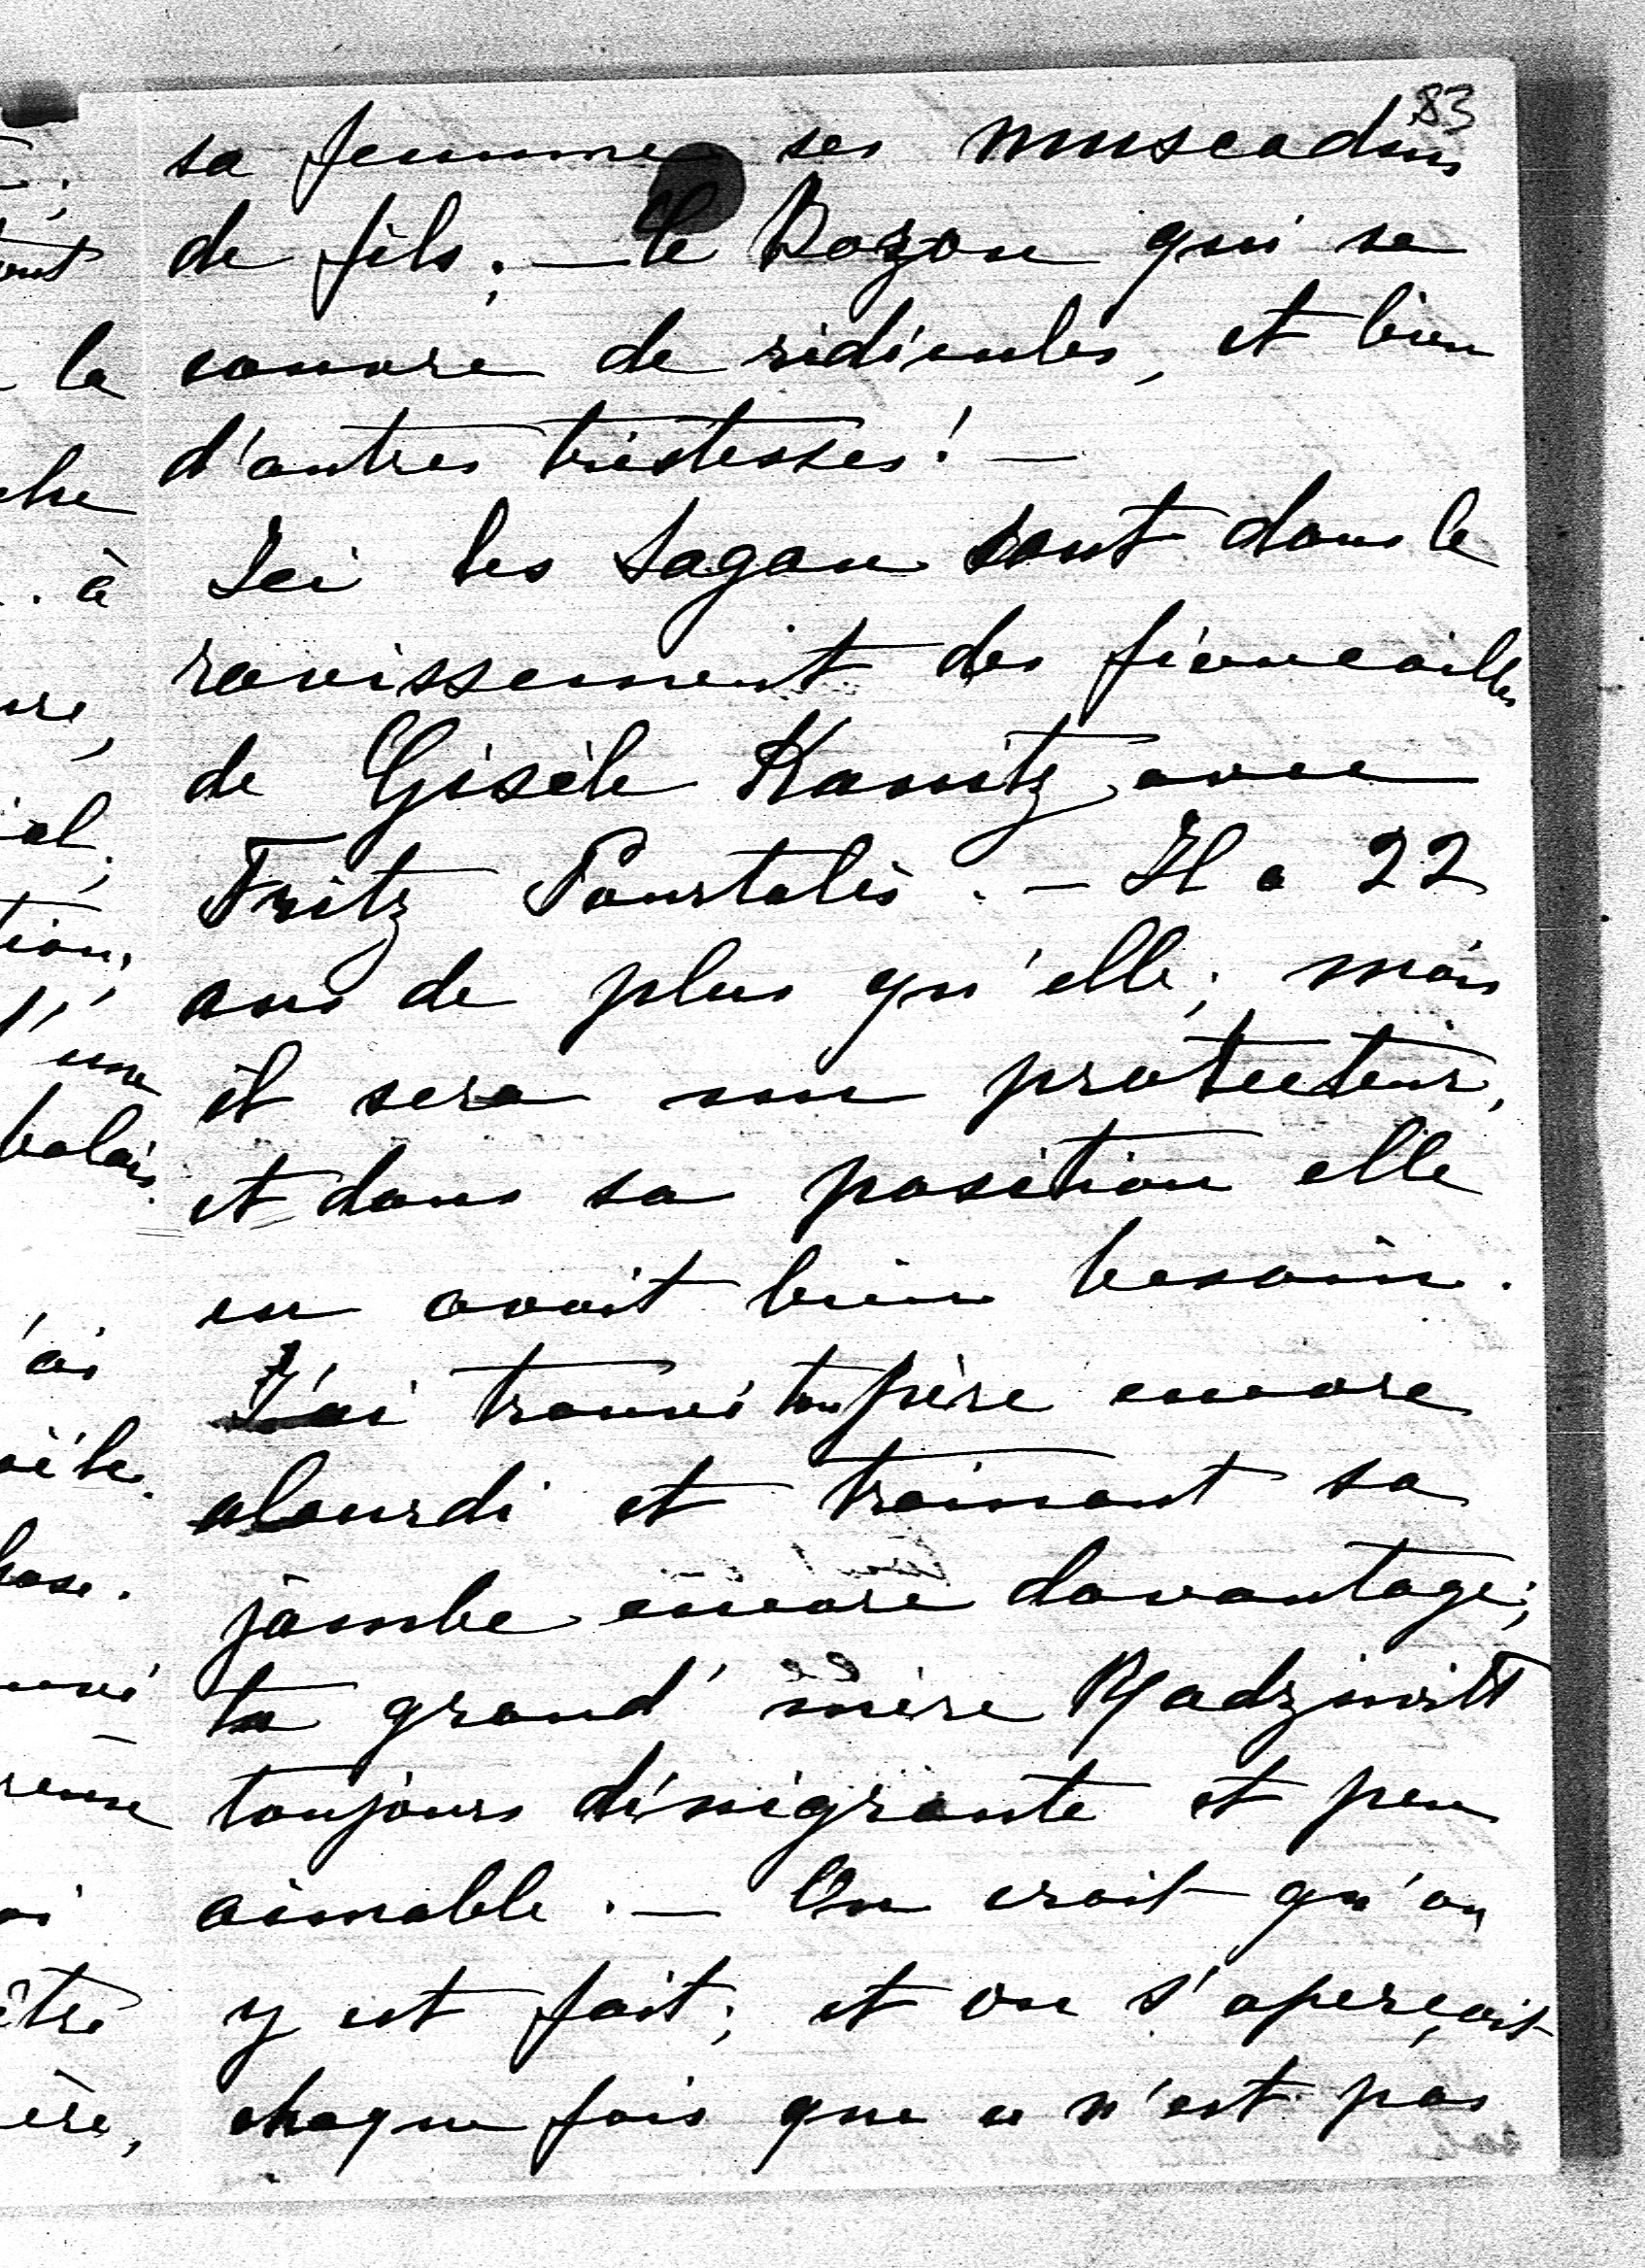 83
sa femme ses muscadins
de fils; — le Bozon qui se
couvre de ridicules, et bien
d'autres tristesses! —
Ici les Sagan sont dans le
ravissement des fiancailles
de Gisèle Kanitz avec
Fritz Pourtalès. — Il a 22
ans de plus qu'elle; mais
il sera son protecteur,
et dans sa position elle
en avait bien besoin.
J'ai trouvé ton père encore
alourdi et trainant sa
jambe encore davantage;
ta grand'mère Radziwill
toujours dénigrante et peu
aimable. — On croit qu'on
y est fait; et on s'aperçoit
chaque fois que ce n'est pas